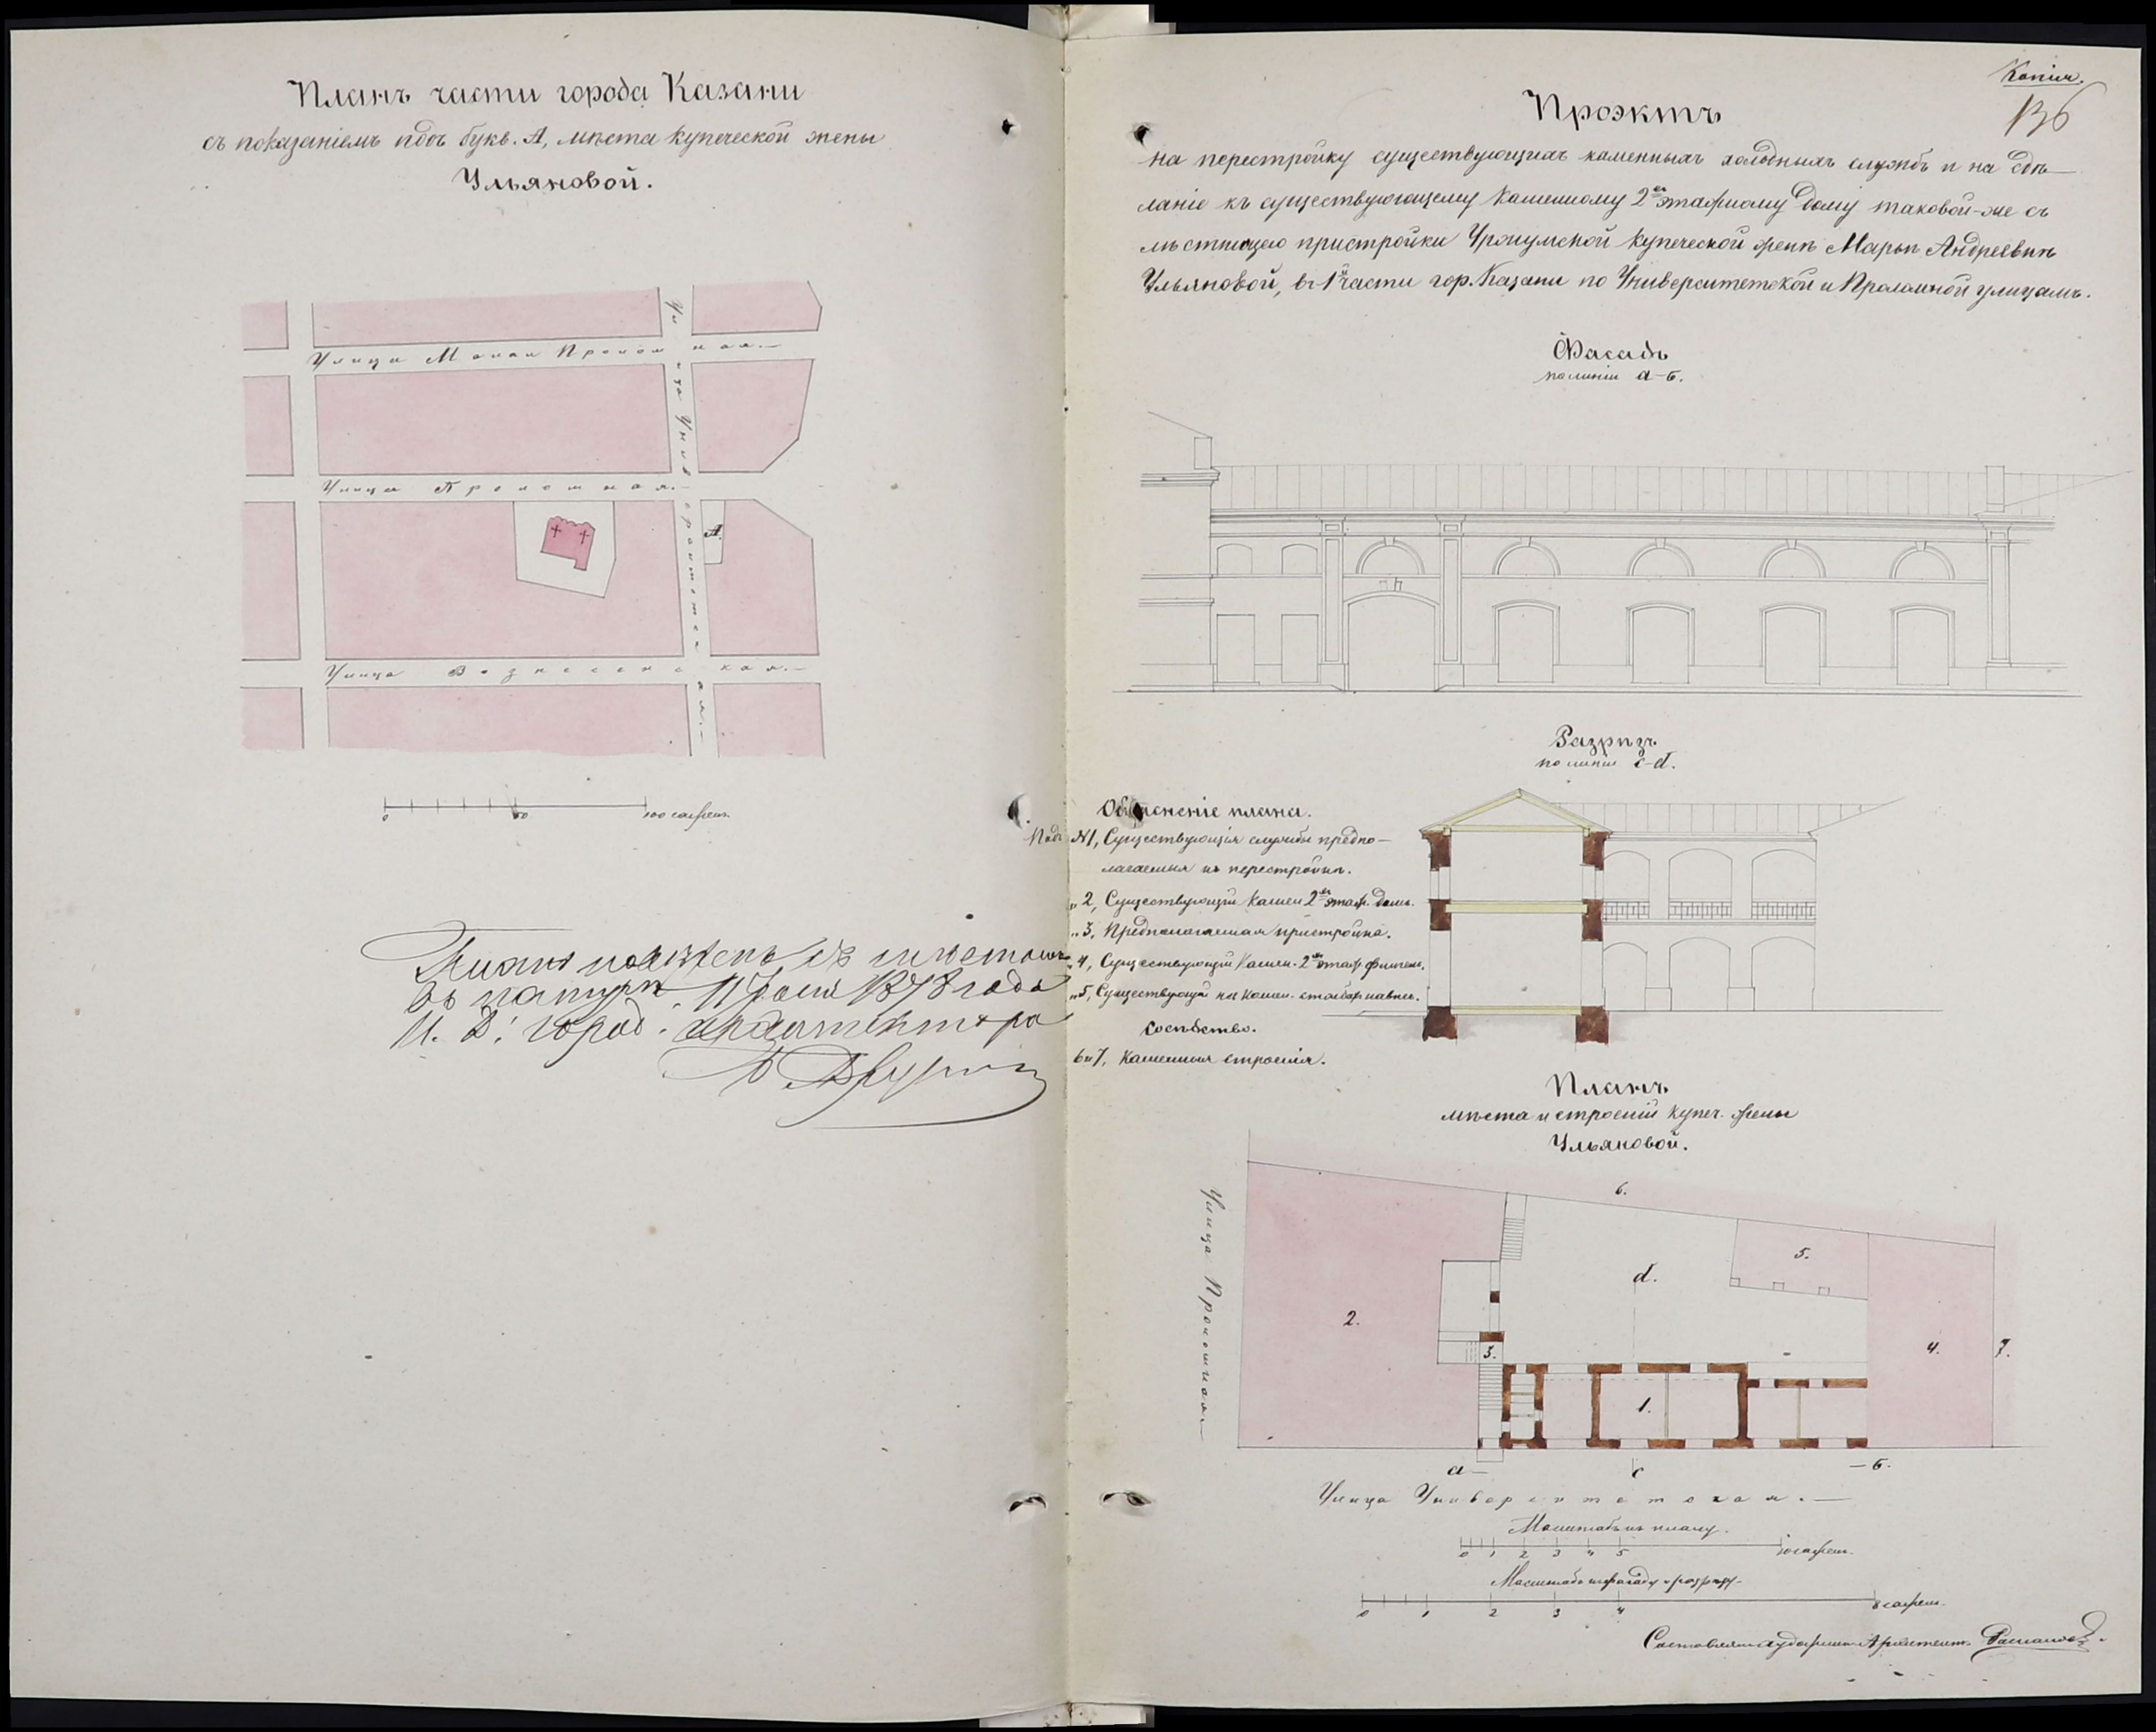 Планъ части города Казани
съ показаніемъ подъ букв. А, мѣста купеческой жены
Ульяновой.
Улица Малая Проломная.
Улица Проломная.
А.
Улица Вознесенская.
Улица Университетская.
0 50 100 сажен.
вѣренъ съ мѣстомъ
въ натурѣ. 1878 года
И. Д. город. архитектора
Копія.
136
Проэктъ
на перестройку существующихъ каменныхъ холодныхъ службъ и на сдѣ-
ланіе къ существующему каменному 2хъ этажному дому таковой-же съ
лѣстницею пристройки Уржумской купеческой женѣ Марьѣ Андреевнѣ
Ульяновой, въ 1й части гор. Казани по Университетской и Проломной улицамъ.
Фасадъ
по линіи а-б.
Разрѣзъ
по линіи с-d.
Объясненіе плана.
Подъ №1, Существующія службы предпо-
лагаемыя къ перестройкѣ.
„ 2, Существующій камен. 2хъ этаж. домъ.
„ 3, Предполагаемая пристройка.
„ 4, Существующій камен. 2хъ этаж. флигель.
„ 5, Существующій на камен. столбах навѣсъ.
Сосѣдство.
6 и 7, Каменныя строенія.
Планъ
мѣста и строеній купеч. жены
Ульяновой.
Улица Проломная.
6.
5.
d.
2.
3.
4.
7.
1.
а — с — б.
Улица Университетская.
Масштабъ къ плану.
0 1 2 3 4 5 10 сажен.
Масштабъ къ фасаду и разрѣзу.
0 1 2 3 4 8 сажен.
Архитект. Романовъ.